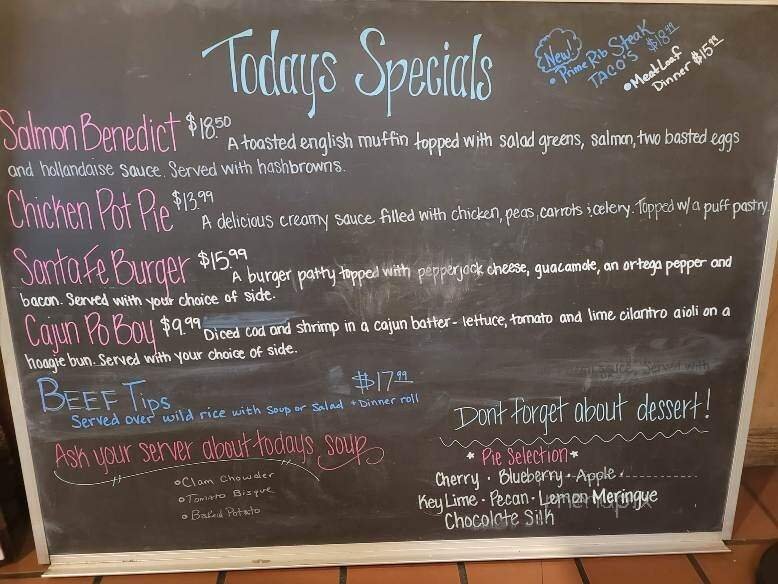 Todays Specials
New!
• Prime Rib Steak
TACO'S $18.99
• Meat Loaf
Dinner $15.99
Salmon Benedict $18.50 A toasted english muffin topped with salad greens, salmon, two basted eggs
and hollandaise sauce. Served with hashbrowns.
Chicken Pot Pie $13.99 A delicious creamy sauce filled with chicken, peas, carrots & celery. Topped w/ a puff pastry.
Santa Fe Burger $15.99 A burger patty topped with pepperjack cheese, guacamole, an ortega pepper and
bacon. Served with your choice of side.
Cajun Po Boy $9.99 Diced cod and shrimp in a cajun batter - lettuce, tomato and lime cilantro aioli on a
hoagie bun. Served with your choice of side.
Served with
BEEF Tips $17.99
Served over wild rice with soup or salad + Dinner roll
Dont forget about dessert!
Ask your server about todays soup
• Clam Chowder
• Tomato Bisque
• Baked Potato
* Pie Selection *
Cherry · Blueberry · Apple ·
Key Lime - Pecan - Lemon Meringue
Chocolate Silk